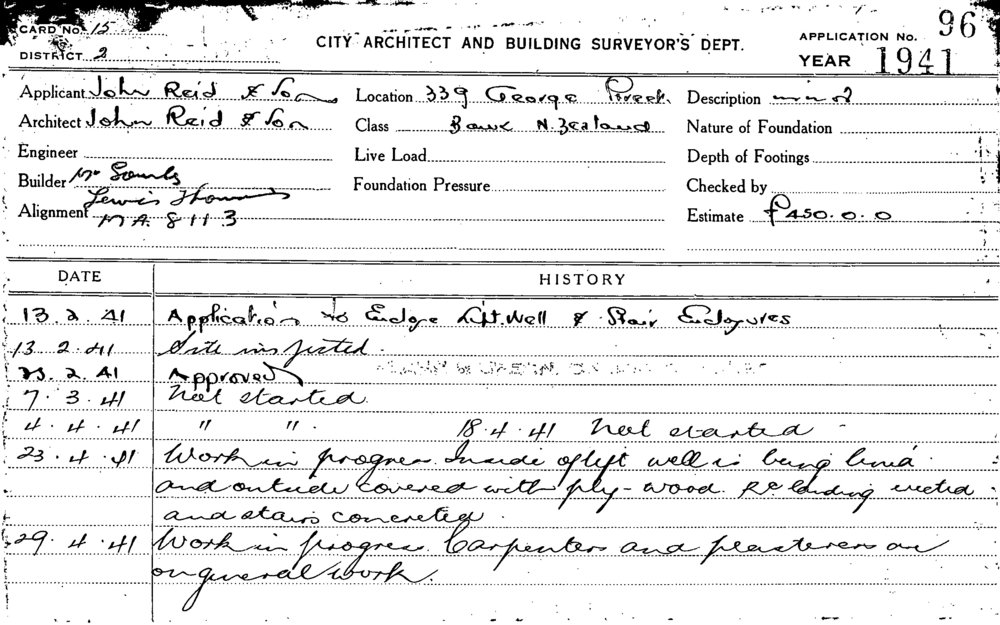 CARD NO. 15
DISTRICT 2
CITY ARCHITECT AND BUILDING SURVEYOR'S DEPT.
APPLICATION NO. 96
YEAR 1941
Applicant John Reid & Son
Location 339 George Street.
Description
Architect John Reid & Son
Class Bank N. Zealand
Nature of Foundation
Engineer
Live Load
Depth of Footings
Builder
Lewis Thomas
Foundation Pressure
Checked by
Alignment MA. 8113
Estimate £450.0.0
DATE HISTORY
13.2.41 Application to Enclose Lift Well & Stair Enclosures
13.2.41 Site inspected.
25.2.41 Approved
7.3.41 Not started.
4.4.41 " ". 18.4.41 Not started -
23.4.41 Work in progress. Inside of lift well is being lined
and outside covered with ply-wood. Rc landing erected
and stairs concreted.
29.4.41 Work in progress. Carpenters and plasterers on
on general work.